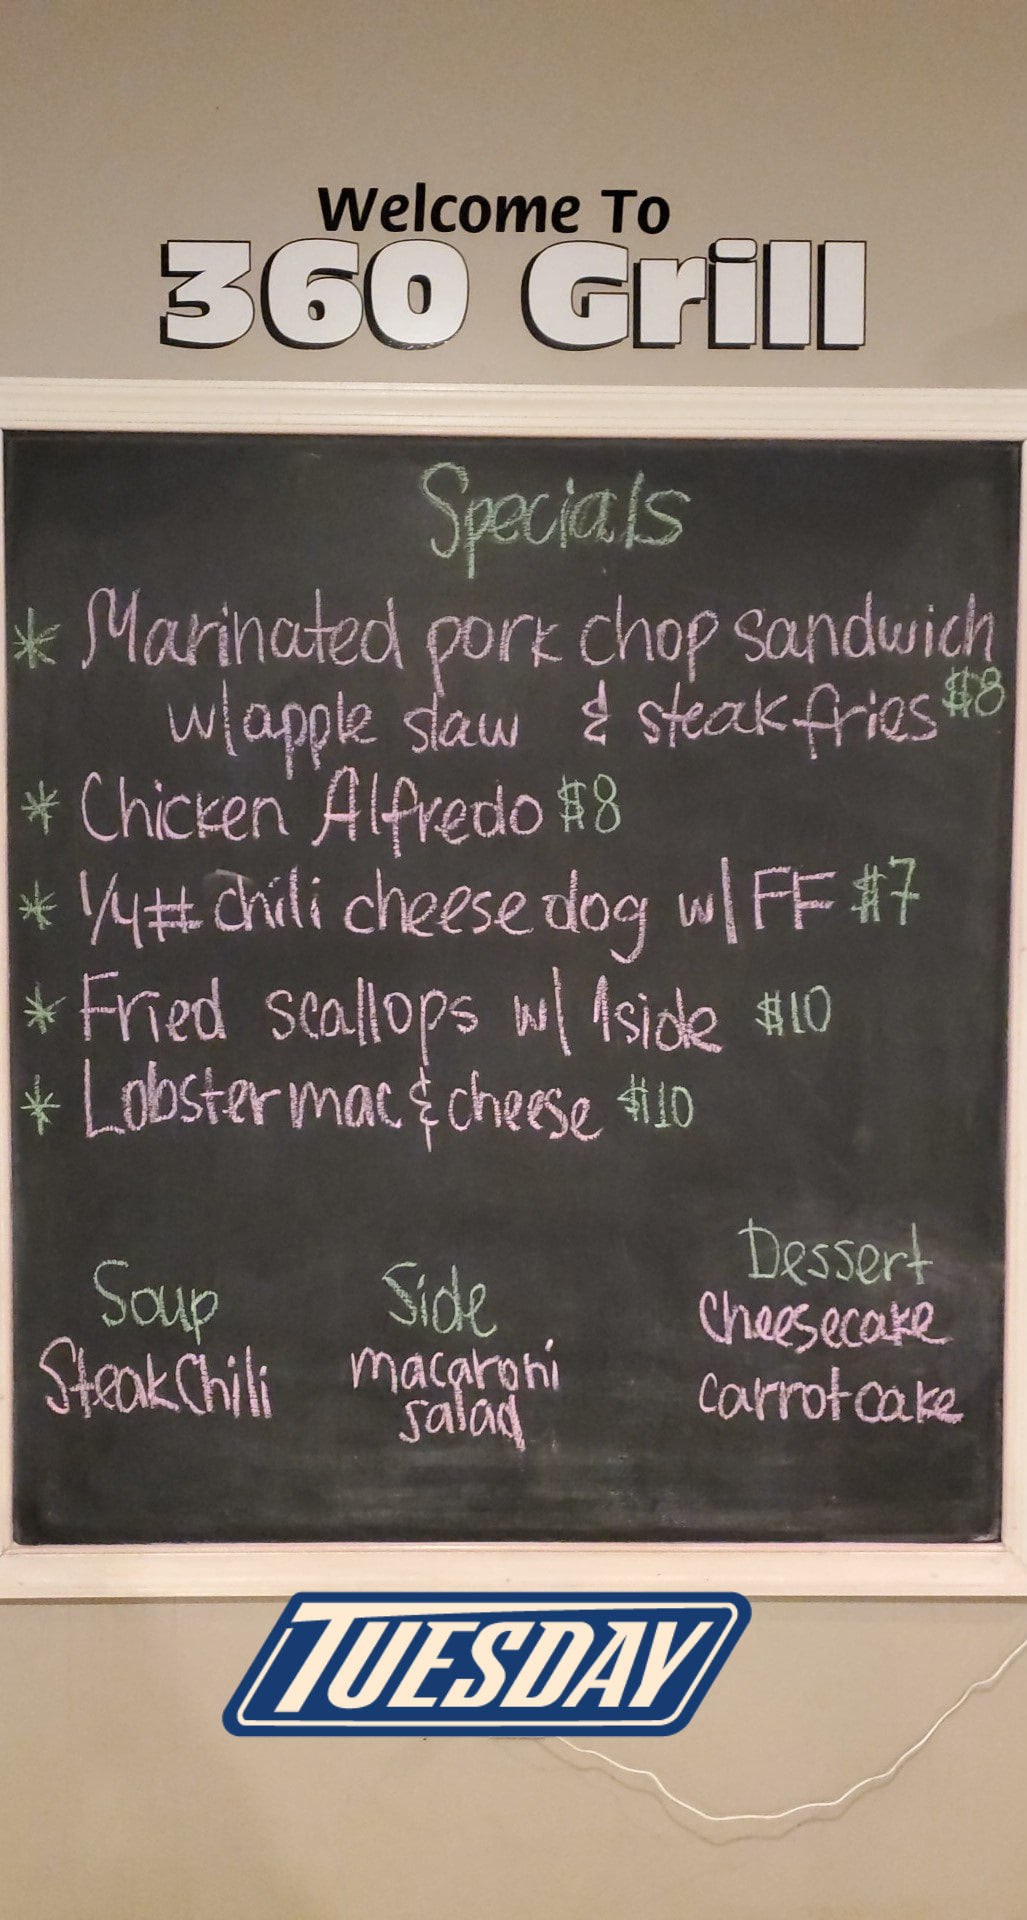 Welcome To
360 Grill
Specials
* Marinated pork chop sandwich
w/apple slaw & steak fries $8
* Chicken Alfredo $8
* 1/4# chili cheese dog w/ FF $7
* Fried scallops w/ 1 side $10
* Lobster mac & cheese $10
Soup
Steak Chili
Side
macaroni
salad
Dessert
Cheesecake
carrot cake
TUESDAY